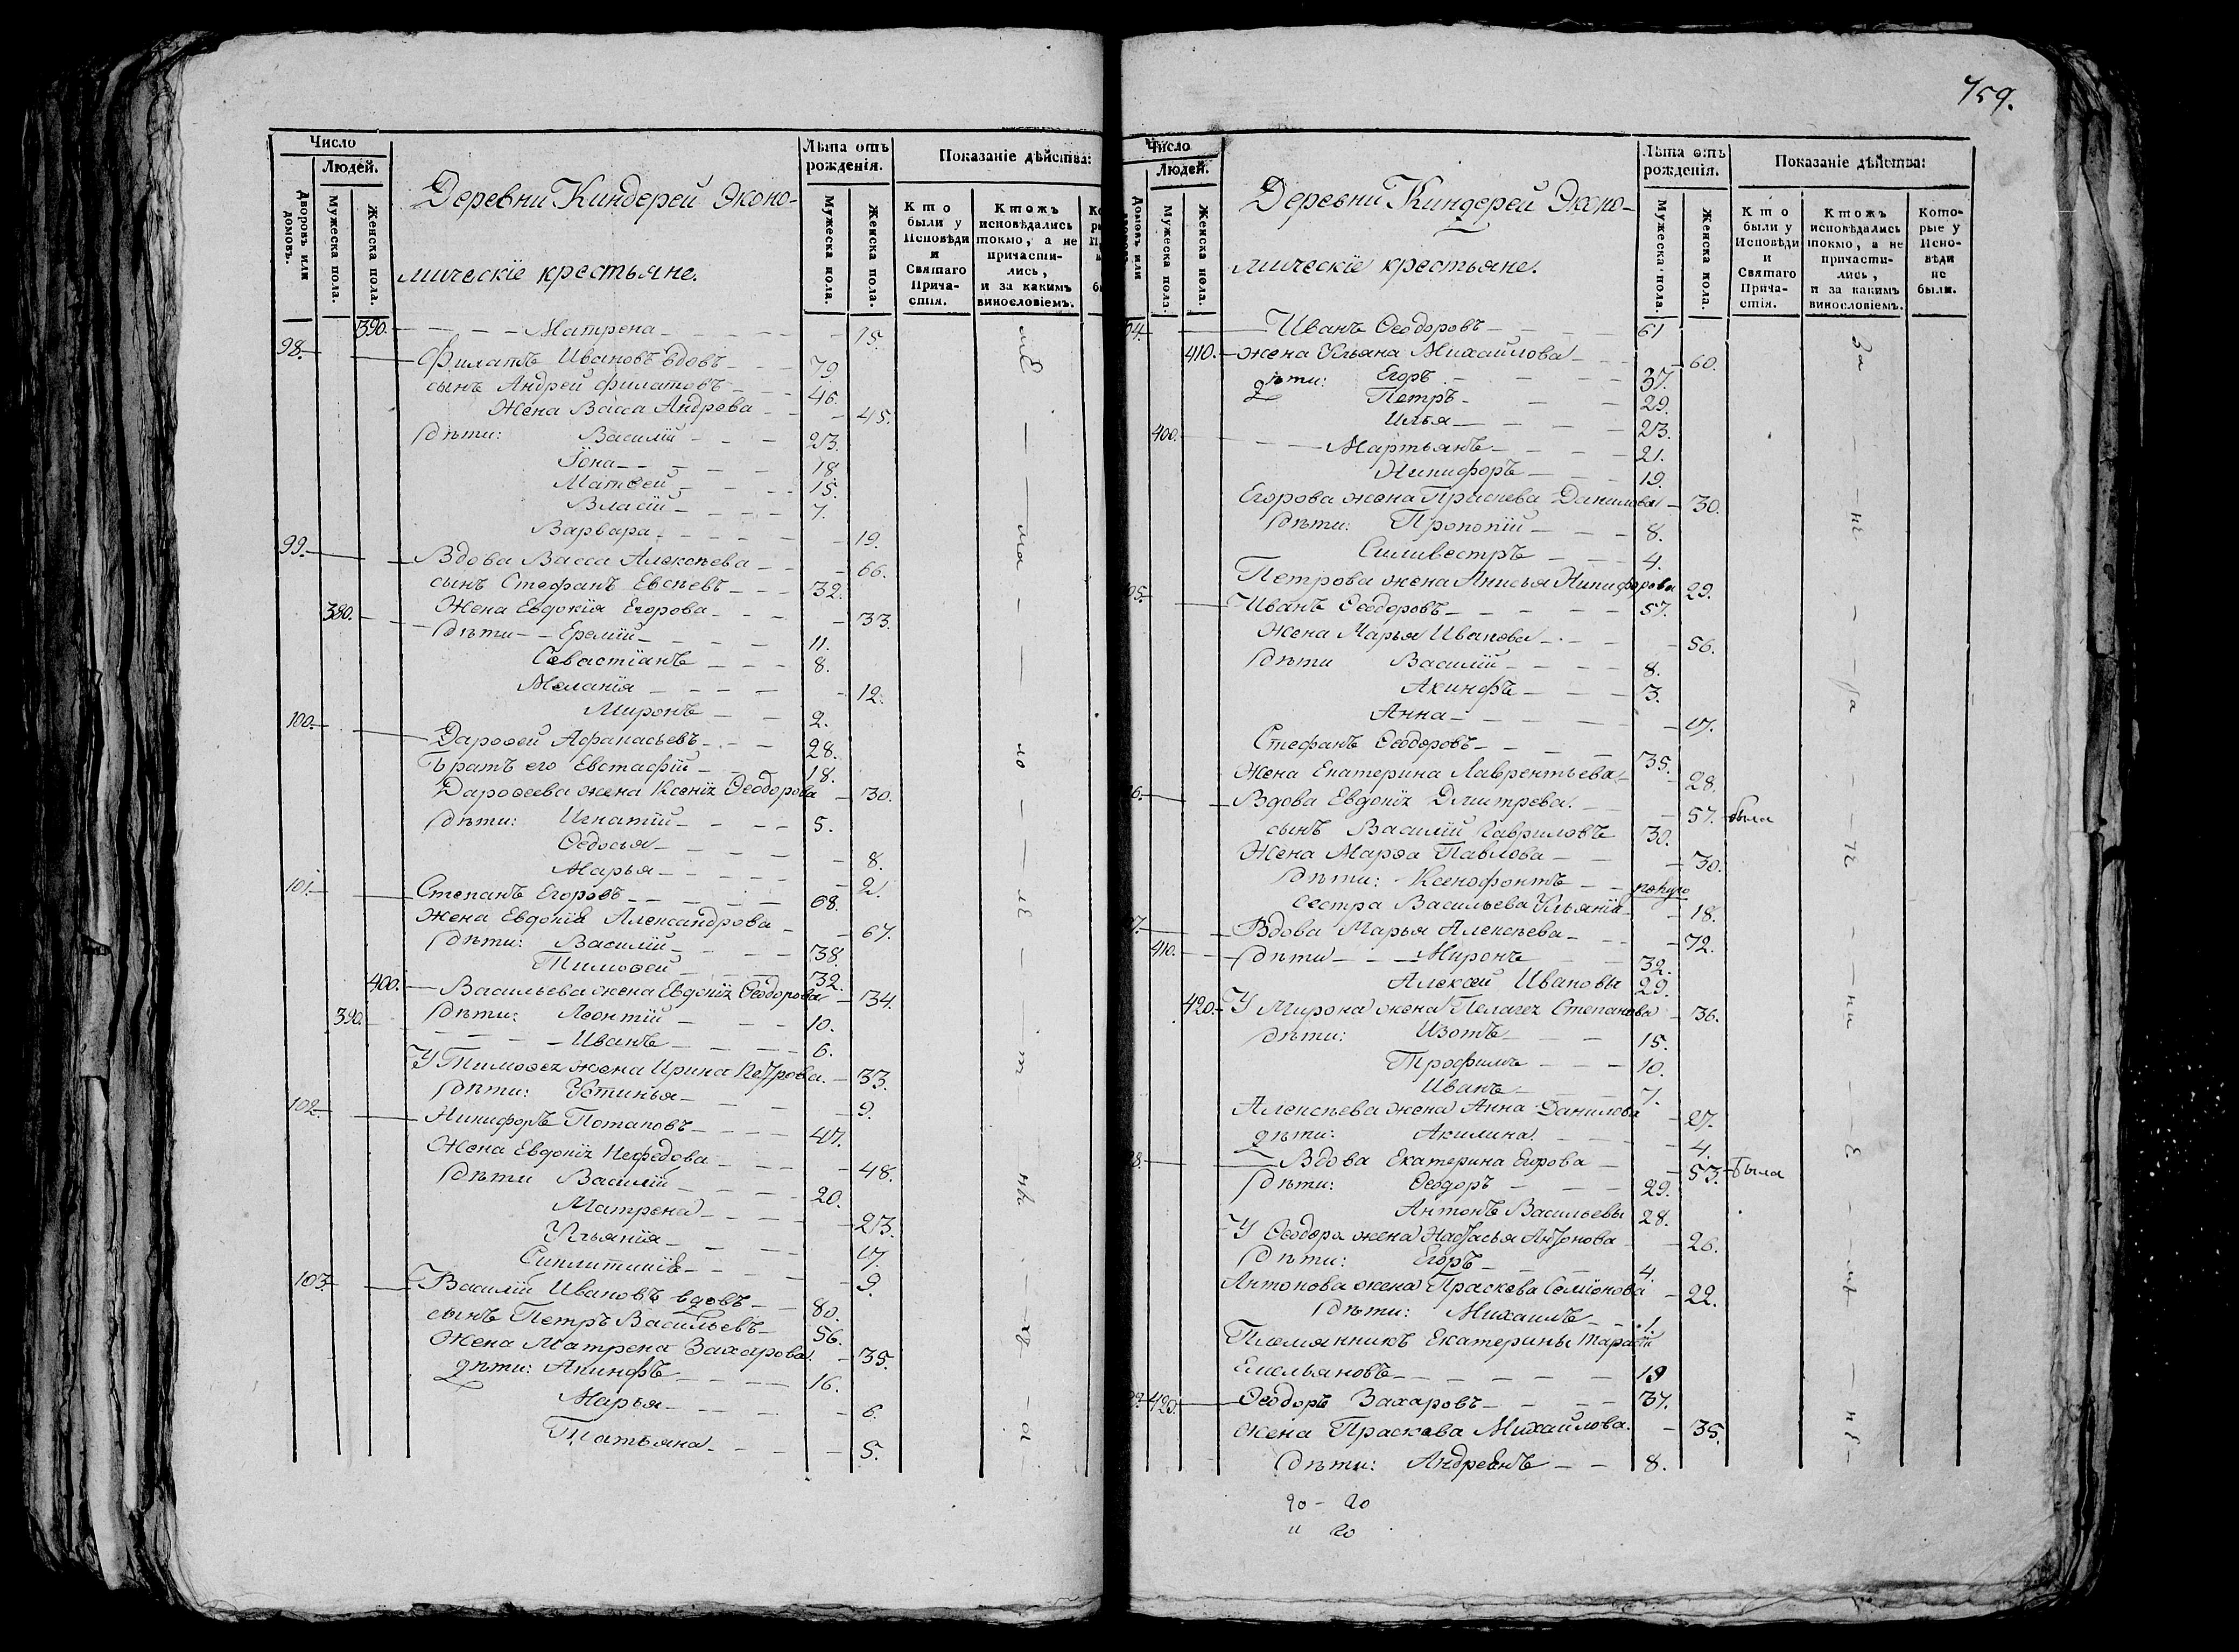 Число
Людей.
Дворовъ или домовъ.
Мужеска пола.
Женска пола.
Деревни Киндерей Эконо-
мическіе крестьяне.
Лѣта отъ рожденія.
Мужеска пола.
Женска пола.
Показаніе дѣйства:
Кто были у Исповѣди и Святаго Причастія.
Ктожъ исповѣдались токмо, а не причастились, и за какимъ винословіемъ.
390. Матрена 15.
98. Филатъ Ивановъ вдовъ 79.
сынъ Андрей Филатовъ 46.
Жена Васса Андрева 45.
дѣти: Василій 23.
Іона 18.
Матѳей 15.
Власій 7.
Варвара 19.
99. Вдова Васса Алексѣева 66.
сынъ Стефанъ Евсѣевъ 32.
Жена Евдокія Егорова 33.
380. дѣти Еремій 11.
Севастіанъ 8.
Меланія 12.
Миронъ 2.
100. Дароѳей Афанасьевъ 28.
Братъ его Евстафій 18.
Дароѳеева жена Ксенія Ѳеодорова 30.
дѣти: Игнатій 5.
Ѳедосья 8.
Марья 2.
101. Степанъ Егоровъ 68.
Жена Евдокія Александрова 67.
дѣти: Василій 38.
Тимоѳей 32.
400. Васильева жена Евдокія Ѳеодорова 34.
390. дѣти: Леонтій 10.
Иванъ 6.
У Тимоѳея жена Ирина Петрова 33.
дѣти: Устинья 9.
102. Никифоръ Потаповъ 47.
Жена Евдокія Нефедова 48.
дѣти Василій 20.
Матрена 23.
Ульянія 17.
Синклитикія 9.
103. Василій Ивановъ вдовъ 80.
сынъ Петръ Васильевъ 56.
Жена Матрена Захарова 35.
дѣти: Акинфъ 16.
Марья 6.
Татьяна 5.
459.
Число
Людей.
Мужеска пола.
Женска пола.
Деревни Киндерей Эконо-
мическіе крестьяне.
Лѣта отъ рожденія.
Мужеска пола.
Женска пола.
Показаніе дѣйства:
Кто были у Исповѣди и Святаго Причастія.
Ктожъ исповѣдались токмо, а не причастились, и за какимъ винословіемъ.
Которые у Исповѣди не были.
04. Иванъ Ѳеодоровъ 61
410. жена Ульяна Михайлова 60.
дѣти: Егоръ 37.
Петръ 29.
Илья 23.
400. Мартьянъ 21.
Никифоръ 19.
Егорова жена Праскева Данилова 30.
дѣти: Прокопій 8.
Силивестръ 4.
Петрова жена Анисья Никифорова 29.
05. Иванъ Ѳеодоровъ 57.
Жена Марья Иванова 56.
дѣти Василій 8.
Акинфъ 3.
Анна 17.
Стефанъ Ѳеодоровъ 35.
Жена Екатерина Лаврентьева 28.
6. Вдова Евдокія Дмитрева 57. была
сынъ Василій Гавриловъ 30.
Жена Марѳа Павлова 30.
дѣти: Ксенофонтъ полуго
сестра Васильева Ульянія 18.
7. Вдова Марья Алексѣева 72.
410. дѣти Миронъ 32.
Алексѣй Ивановы 29.
420. У Мирона жена Пелагея Степанова 36.
дѣти: Изотъ 15.
Трофимъ 10.
Иванъ 7.
Алексѣева жена Анна Данилова 27.
дѣти: Акилина 4.
8. Вдова Екатерина Егорова 53. была
дѣти: Ѳеодоръ 29.
Антонъ Васильевы 28.
У Ѳеодора жена Настасья Антонова 26.
дѣти: Егоръ 4.
Антонова жена Праскева Семіонова 22.
дѣти: Михаилъ 1.
Племянникъ Екатерины Тарасій
Емельяновъ 19
9. 420. Ѳеодоръ Захаровъ 37.
Жена Праскева Михайлова 35.
дѣти: Андреянъ 8.
20 - 20
" 20